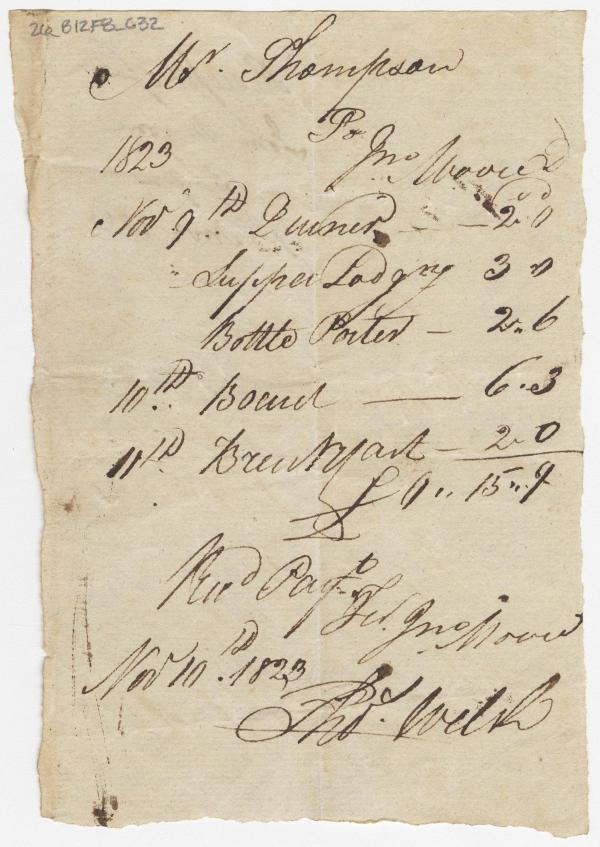 26a_B12F8_G32
Mr. Thompson
To
1823 Jno Moore Dr
Nov 9th Dinner — 2 .. 0
Supper Lodgng 3 " 0
Bottle Porter — 2 " 6
10th Board — 6 . 3
11th Breakfast — 2 . 0
£ 0 .. 15 .. 9
Recd Paymt
For Jno Moore
Nov 10th 1823
Thos. Welsh